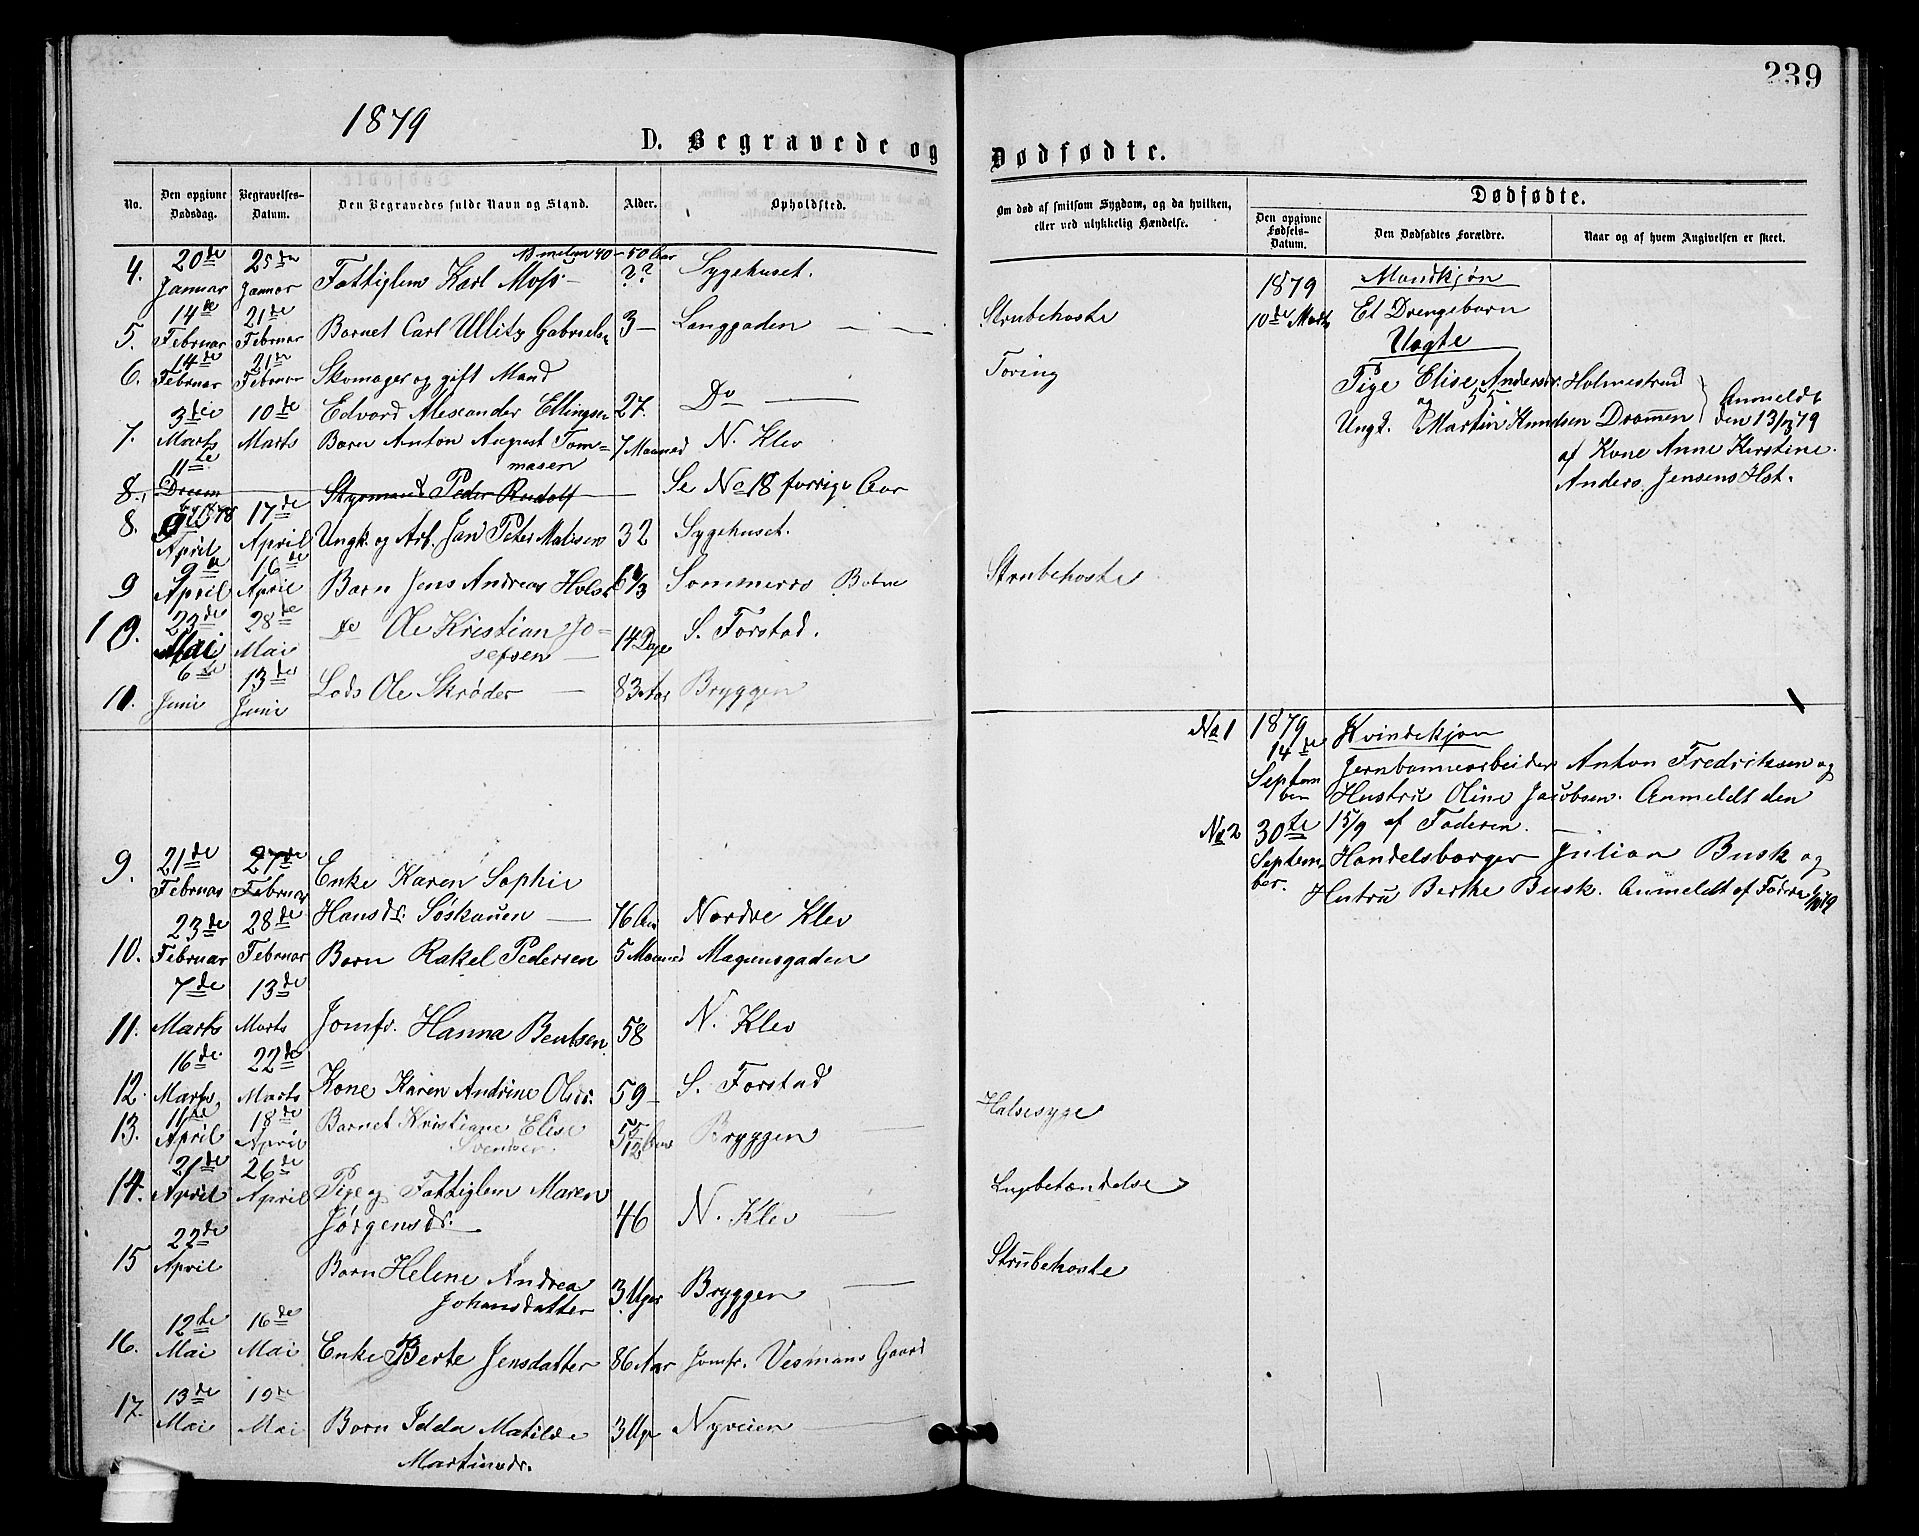 239
1879
D. Begravede og Dødfødte.
No. Den opgivne Dødsdag. Begravelses-Datum. Den Begravedes fulde Navn og Stand. Alder. Opholdsted.
Om død af smitsom Sygdom, og da hvilken, eller ved ulykkelig Hændelse.
Dødfødte.
Den opgivne Fødsels-Datum. Den Dødfødtes Forældre. Naar og af hvem Angivelsen er skeet.
40-50 Aar
4. 20de Januar 25de Januar Fattiglem Karl Moss ?? Sygehuset.
5. 14de Februar 21de Februar Barnet Carl Ullitz Gabrielse 3 Langgaden Strubehoste
6. 14de Februar 21de Februar Skomager og gift Mand
Edvard Alexander Ellingsen 27. Do Tæring
7. 3die Marts 10de Marts Barn Anton August Tom=
masen 7 Maaned N. Klev
8. 11te Decem Styrmand Peder Rudolf Se No 18 forrige Aar
ber 1878
8. April 17de April Ungk. og Arb. Jan Peter Matisen 32 Sygehuset.
9 9de April 16de April Barn Jens Andreas Holst Sommerro Strubehoste
10. 23de Mai 28de Mai Do Ole Kristian Jo=
sefsen 14 Dage S. Forstad.
11. 6te Juni 13de Juni Lods Ole Skrøder 83 Aar Bryggen
9. 21de Februar 27de Februar Enke Karen Sophie
10. 23de Februar 28de Februar Hansdr. Søskauen 76 Aar Nordre Klev
Barn Rakel Pedersen 5 Maaned Magnusgaden
11. 7de Marts 13de Marts Jomfr. Hanna Bentsen 58 N. Klev
12. 16de Marts 22de Marts Kone Karen Andrine Olsdr. 59 S. Forstad
13. 11te April 18de April Barnet Kristiane Elise
Svendsen 5 5/12 Aar Bryggen Halsesyge
14. 21de April 26de April Pige og Fattiglem Maren
Jørgensdr. 46 N. Klev Lugbetændelse
15 22de April Barn Helene Andrea
Johansdatter 3 Uger Bryggen Strubehoste
16. 12te Mai 16de Mai Enke Berte Jensdatter 86 Aar Jomfr. Vesmans Gaard
17. 13de Mai 19de Mai Barn Idda Matilde
Martinsdr. 3 Ug Nyveien
1879 Mandkjøn
10de Marts Et Drengebarn
Uægte
Pige Elise Andersdr. Holmestrand
og
Ungk. Martin Knudsen Dramen
Anmeldt
den 13/3 79
af Kone Anne Kirstine
Anders Jensens Hst.
No 1 1879 Kvindekjøn
14de Septem
ber Jernbannearbeider Anton Fredriksen og
Hustru Oline Jacobsen. Anmeldt den
15/9 af Faderen.
No 2 30te Septem
ber. Handelsborger Julian Busk og
Hustru Berthe Busk. Anmeldt af Fadern